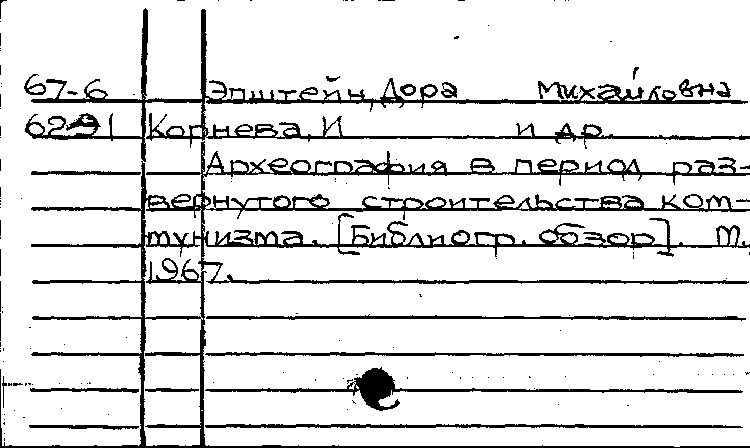 67-6 Эпштейн, Дора Михайловна
6291 Корнева, И и др.
Археография в период раз-
вернутого строительства ком-
мунизма. [Библиогр. обзор]. М.,
1967.